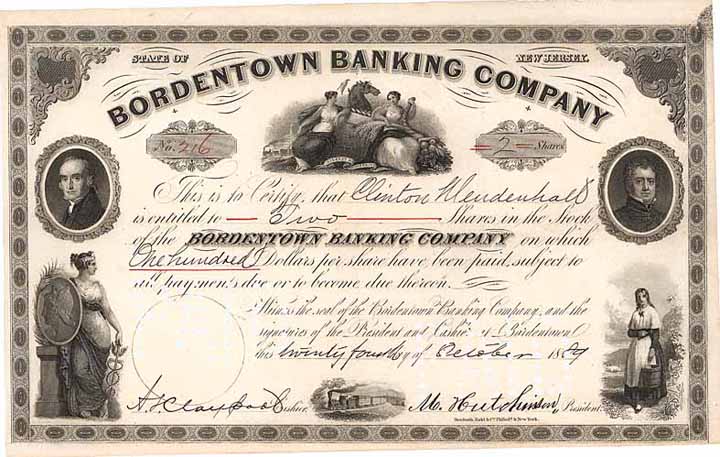 STATE OF NEW JERSEY.
BORDENTOWN BANKING COMPANY
No. 216 2 Shares
This is to Certify, that Clinton Mendenhall
is entitled to Two Shares in the Stock
of the BORDENTOWN BANKING COMPANY on which
One hundred Dollars per share have been paid, subject to
all payments due or to become due thereon.
Witness the seal of the Bordentown Banking Company, and the
signatures of the President and Cashier at Bordentown
this twenty fourth day of October 1889
Cashier. M. Hutchinson, President.